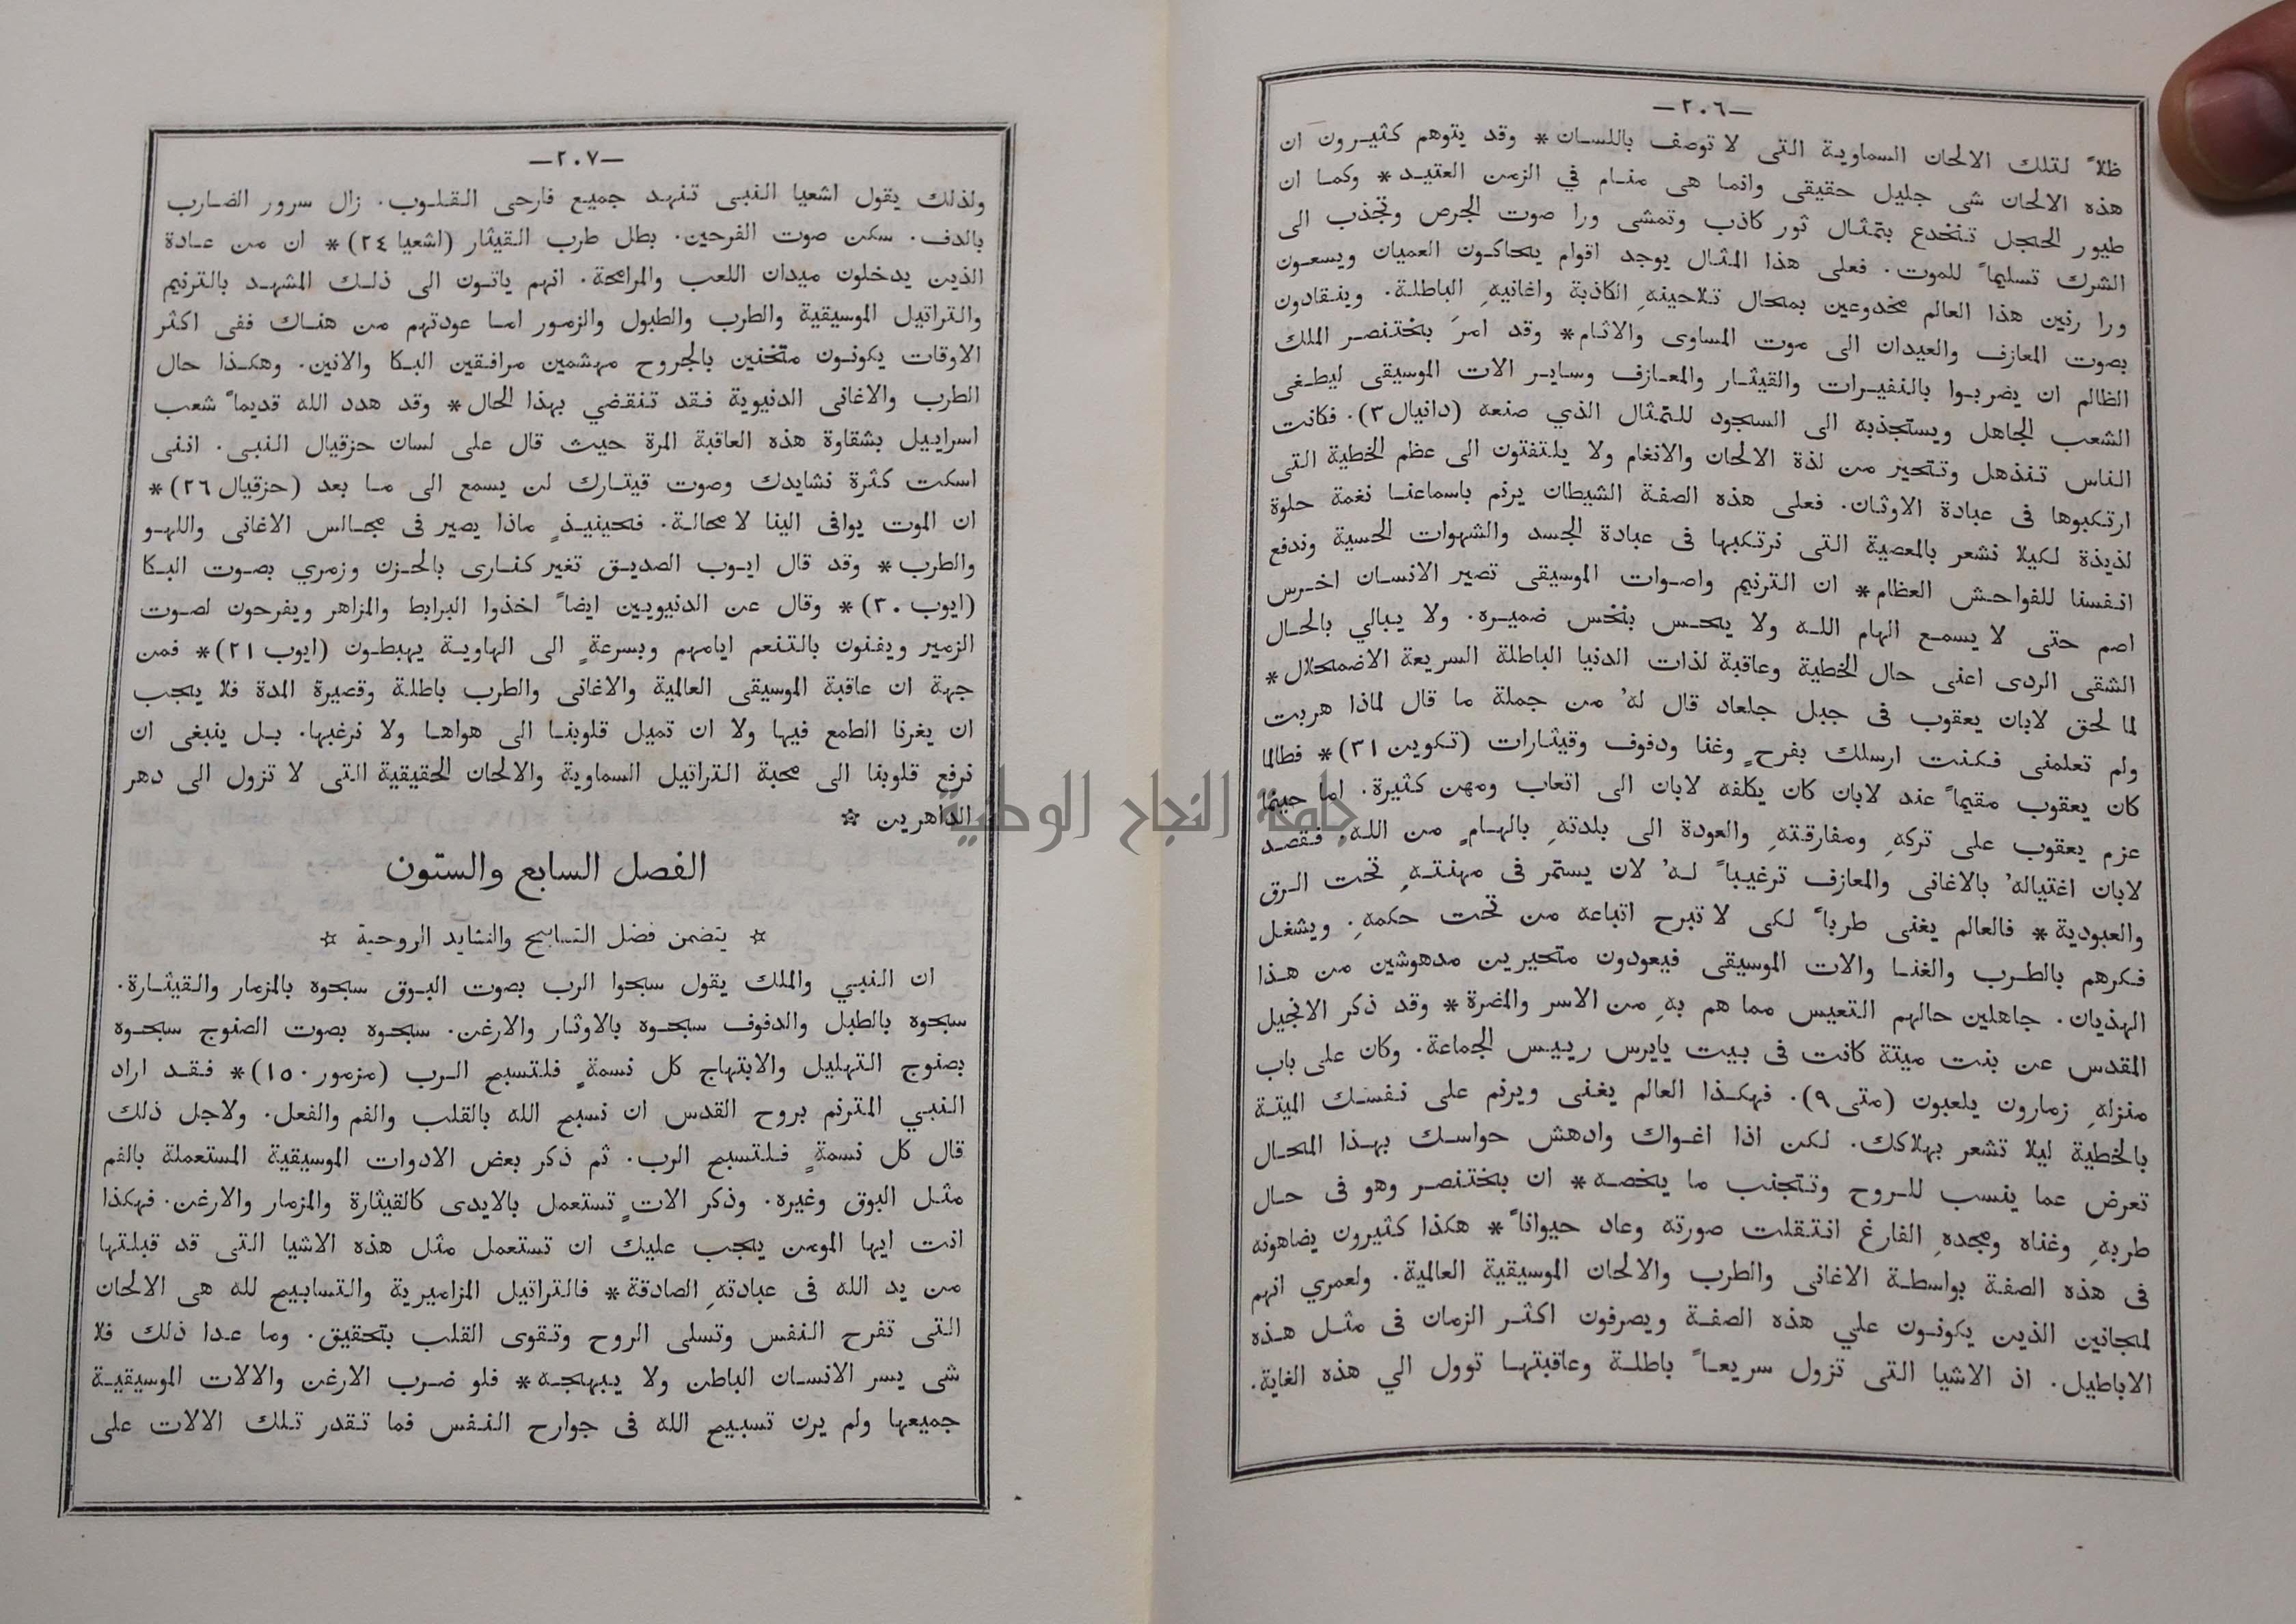 —٢٠٦—
ظلاً لتلك الالحان السماوية التى لا توصف باللسان* وقد يتوهم كثيرون ان
هذه الالحان شى جليل حقيقى وانما هى منام في الزمن العتيد* وكما ان
طيور الحجل تنخدع بتمثال ثور كاذب وتمشى ورا صوت الجرص وتجذب الى
الشرك تسليماً للموت. فعلى هذا المثال يوجد اقوام يحاكون العميان ويسعون
ورا رنين هذا العالم مخدوعين بمحال تلاحينهِ الكاذبة واغانيهِ الباطلة. وينقادون
بصوت المعازف والعيدان الى موت المساوى والاثام* وقد امرَ بختنصر الملك
الظالم ان يضربوا بالنفيرات والقيثار والمعازف وساير الات الموسيقى ليطغى
الشعب الجاهل ويستجذبه الى السجود للتمثال الذي صنعه (دانيال ٣). فكانت
الناس تنذهل وتتحير من لذة الالحان والانغام ولا يلتفتون الى عظم الخطية التى
ارتكبوها فى عبادة الاوثان. فعلى هذه الصفة الشيطان يرنم باسماعنا نغمة حلوة
لذيذة لكيلا نشعر بالمعصية التى نرتكبها فى عبادة الجسد والشهوات الحسية وندفع
انفسنا للفواحش العظام* ان الترنيم واصوات الموسيقى تصير الانسان اخرس
اصم حتى لا يسمع الهام الله ولا يحس بنخس ضميره. ولا يبالي بالحال
الشقى الردى اعنى حال الخطية وعاقبة لذات الدنيا الباطلة السريعة الاضمحلال*
لما لحق لابان يعقوب فى جبل جلعاد قال لهُ من جملة ما قال لماذا هربت
ولم تعلمنى فكنت ارسلك بفرحٍ وغنا ودفوف وقيثارات (تكوين ٣١)* فطالما
كان يعقوب مقيماً عند لابان كان يكلفه لابان الى اتعاب ومهن كثيرة. اما حينما
عزم يعقوب على تركهِ ومفارقتهِ والعودة الى بلدتهِ بالهامٍ من الله. فقصد
لابان اغتيالهُ بالاغانى والمعازف ترغيباً لهُ لان يستمر فى مهنتهِ تحت الرق
والعبودية* فالعالم يغنى طرباً لكى لا تبرح اتباعه من تحت حكمهِ. ويشغل
فكرهم بالطرب والغنا والات الموسيقى فيعودون متحيرين مدهوشين من هذا
الهذيان. جاهلين حالهم التعيس مما هم بهِ من الاسر والمضرة* وقد ذكر الانجيل
المقدس عن بنت ميتة كانت فى بيت يايرس رييس الجماعة. وكان على باب
منزلهِ زمارون يلعبون (متى ٩). فهكذا العالم يغنى ويرنم على نفسك الميتة
بالخطية ليلا تشعر بهلاكك. لكن اذا اغواك وادهش حواسك بهذا المحال
تعرض عما ينسب للروح وتتجنب ما يخصه* ان بختنصر وهو فى حال
طربهِ وغناه ومجدهِ الفارغ انتقلت صورته وعاد حيواناً* هكذا كثيرون يضاهونه
فى هذه الصفة بواسطة الاغانى والطرب والالحان الموسيقية العالمية. ولعمري انهم
لمجانين الذين يكونون علي هذه الصفة ويصرفون اكثر الزمان فى مثل هذه
الاباطيل. اذ الاشيا التى تزول سريعاً باطلة وعاقبتها توول الي هذه الغاية.
—٢٠٧—
ولذلك يقول اشعيا النبى تنهد جميع فارحى القلوب. زال سرور الضارب
بالدف. سكن صوت الفرحين. بطل طرب القيثار (اشعيا ٢٤)* ان من عادة
الذين يدخلون ميدان اللعب والمرامحة. انهم ياتون الى ذلك المشهد بالترنيم
والتراتيل الموسيقية والطرب والطبول والزمور اما عودتهم من هناك ففى اكثر
الاوقات يكونون متخنين بالجروح مهشمين مرافقين البكا والانين. وهكذا حال
الطرب والاغانى الدنيوية فقد تنقضي بهذا الحال* وقد هدد الله قديماً شعب
اسراييل بشقاوة هذه العاقبة المرة حيث قال على لسان حزقيال النبى. اننى
اسكت كثرة نشايدك وصوت قيتارك لن يسمع الى ما بعد (حزقيال ٢٦)*
ان الموت يوافى الينا لا محالة. فحينيذٍ ماذا يصير فى مجالس الاغانى واللهو
والطرب* وقد قال ايوب الصديق تغير كنارى بالحزن وزمري بصوت البكا
(ايوب ٣٠)* وقال عن الدنيويين ايضاً اخذوا البرابط والمزاهر ويفرحون لصوت
الزمير ويفنون بالتنعم ايامهم وبسرعةٍ الى الهاوية يهبطون (ايوب ٢١)* فمن
جهة ان عاقبة الموسيقى العالمية والاغانى والطرب باطلة وقصيرة المدة فلا يجب
ان يغرنا الطمع فيها ولا ان تميل قلوبنا الى هواها ولا نرغبها. بل ينبغى ان
نرفع قلوبنا الى محبة التراتيل السماوية والالحان الحقيقية التى لا تزول الى دهر
الداهرين ☆
الفصل السابع والستون
☆ يتضمن فضل التسابيح والنشايد الروحية ☆
ان النبي والملك يقول سبحوا الرب بصوت البوق سبحوه بالمزمار والقيثارة.
سبحوه بالطبل والدفوف سبحوه بالاوثار والارغن. سبحوه بصوت الصنوج سبحوه
بصنوج التهليل والابتهاج كل نسمةٍ فلتسبح الرب (مزمور ١٥٠)* فقد اراد
النبي المترنم بروح القدس ان نسبح الله بالقلب والفم والفعل. ولاجل ذلك
قال كل نسمةٍ فلتسبح الرب. ثم ذكر بعض الادوات الموسيقية المستعملة بالفم
مثل البوق وغيره. وذكر الاتٍ تستعمل بالايدى كالقيثارة والمزمار والارغن. فهكذا
انت ايها المومن يجب عليك ان تستعمل مثل هذه الاشيا التى قد قبلتها
من يد الله فى عبادتهِ الصادقة* فالتراتيل المزاميرية والتسابيح لله هى الالحان
التى تفرح النفس وتسلى الروح وتقوى القلب بتحقيق. وما عدا ذلك فلا
شى يسر الانسان الباطن ولا يبهجه* فلو ضرب الارغن والالات الموسيقية
جميعها ولم يرن تسبيح الله فى جوارح النفس فما تقدر تلك الالات على
جامعة النجاح الوطنية